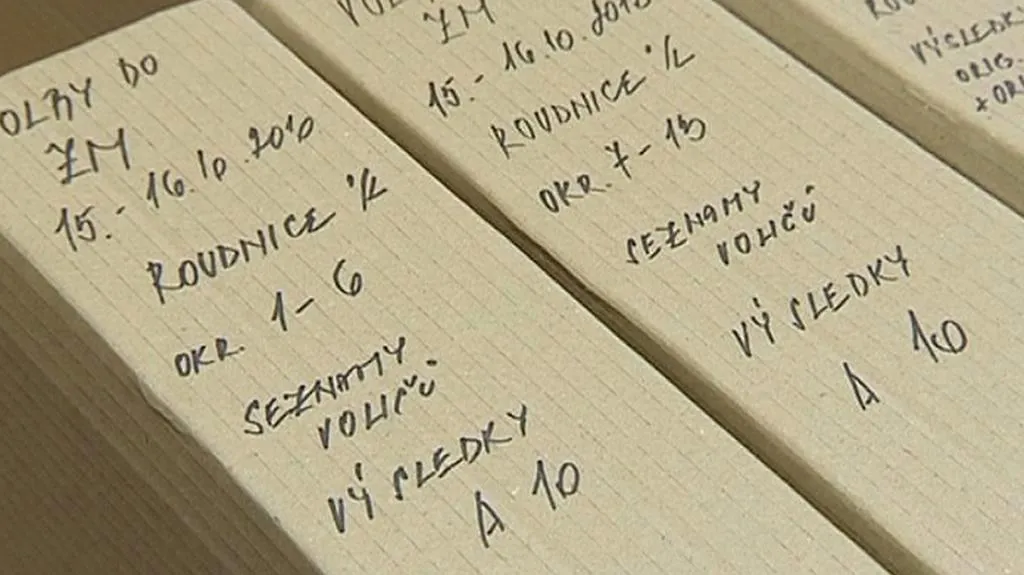 OLBY DO
ZM
15. - 16.10.2010
ROUDNICE n/L
OKR. 1 - 6
SEZNAMY
VOLIČŮ
VÝSLEDKY
A 10
ZM
15. - 16.10.2010
ROUDNICE n/L
OKR. 7 - 13
SEZNAMY
VOLIČŮ
VÝSLEDKY
A 10
VÝSLEDK
ORIG.